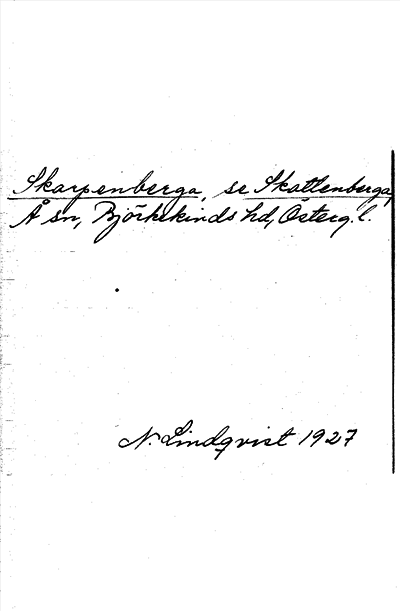 Skarpenberga, se Skattenberga,
Å sn, Björkekinds hd, Österg. l.
N. Lindqvist 1927